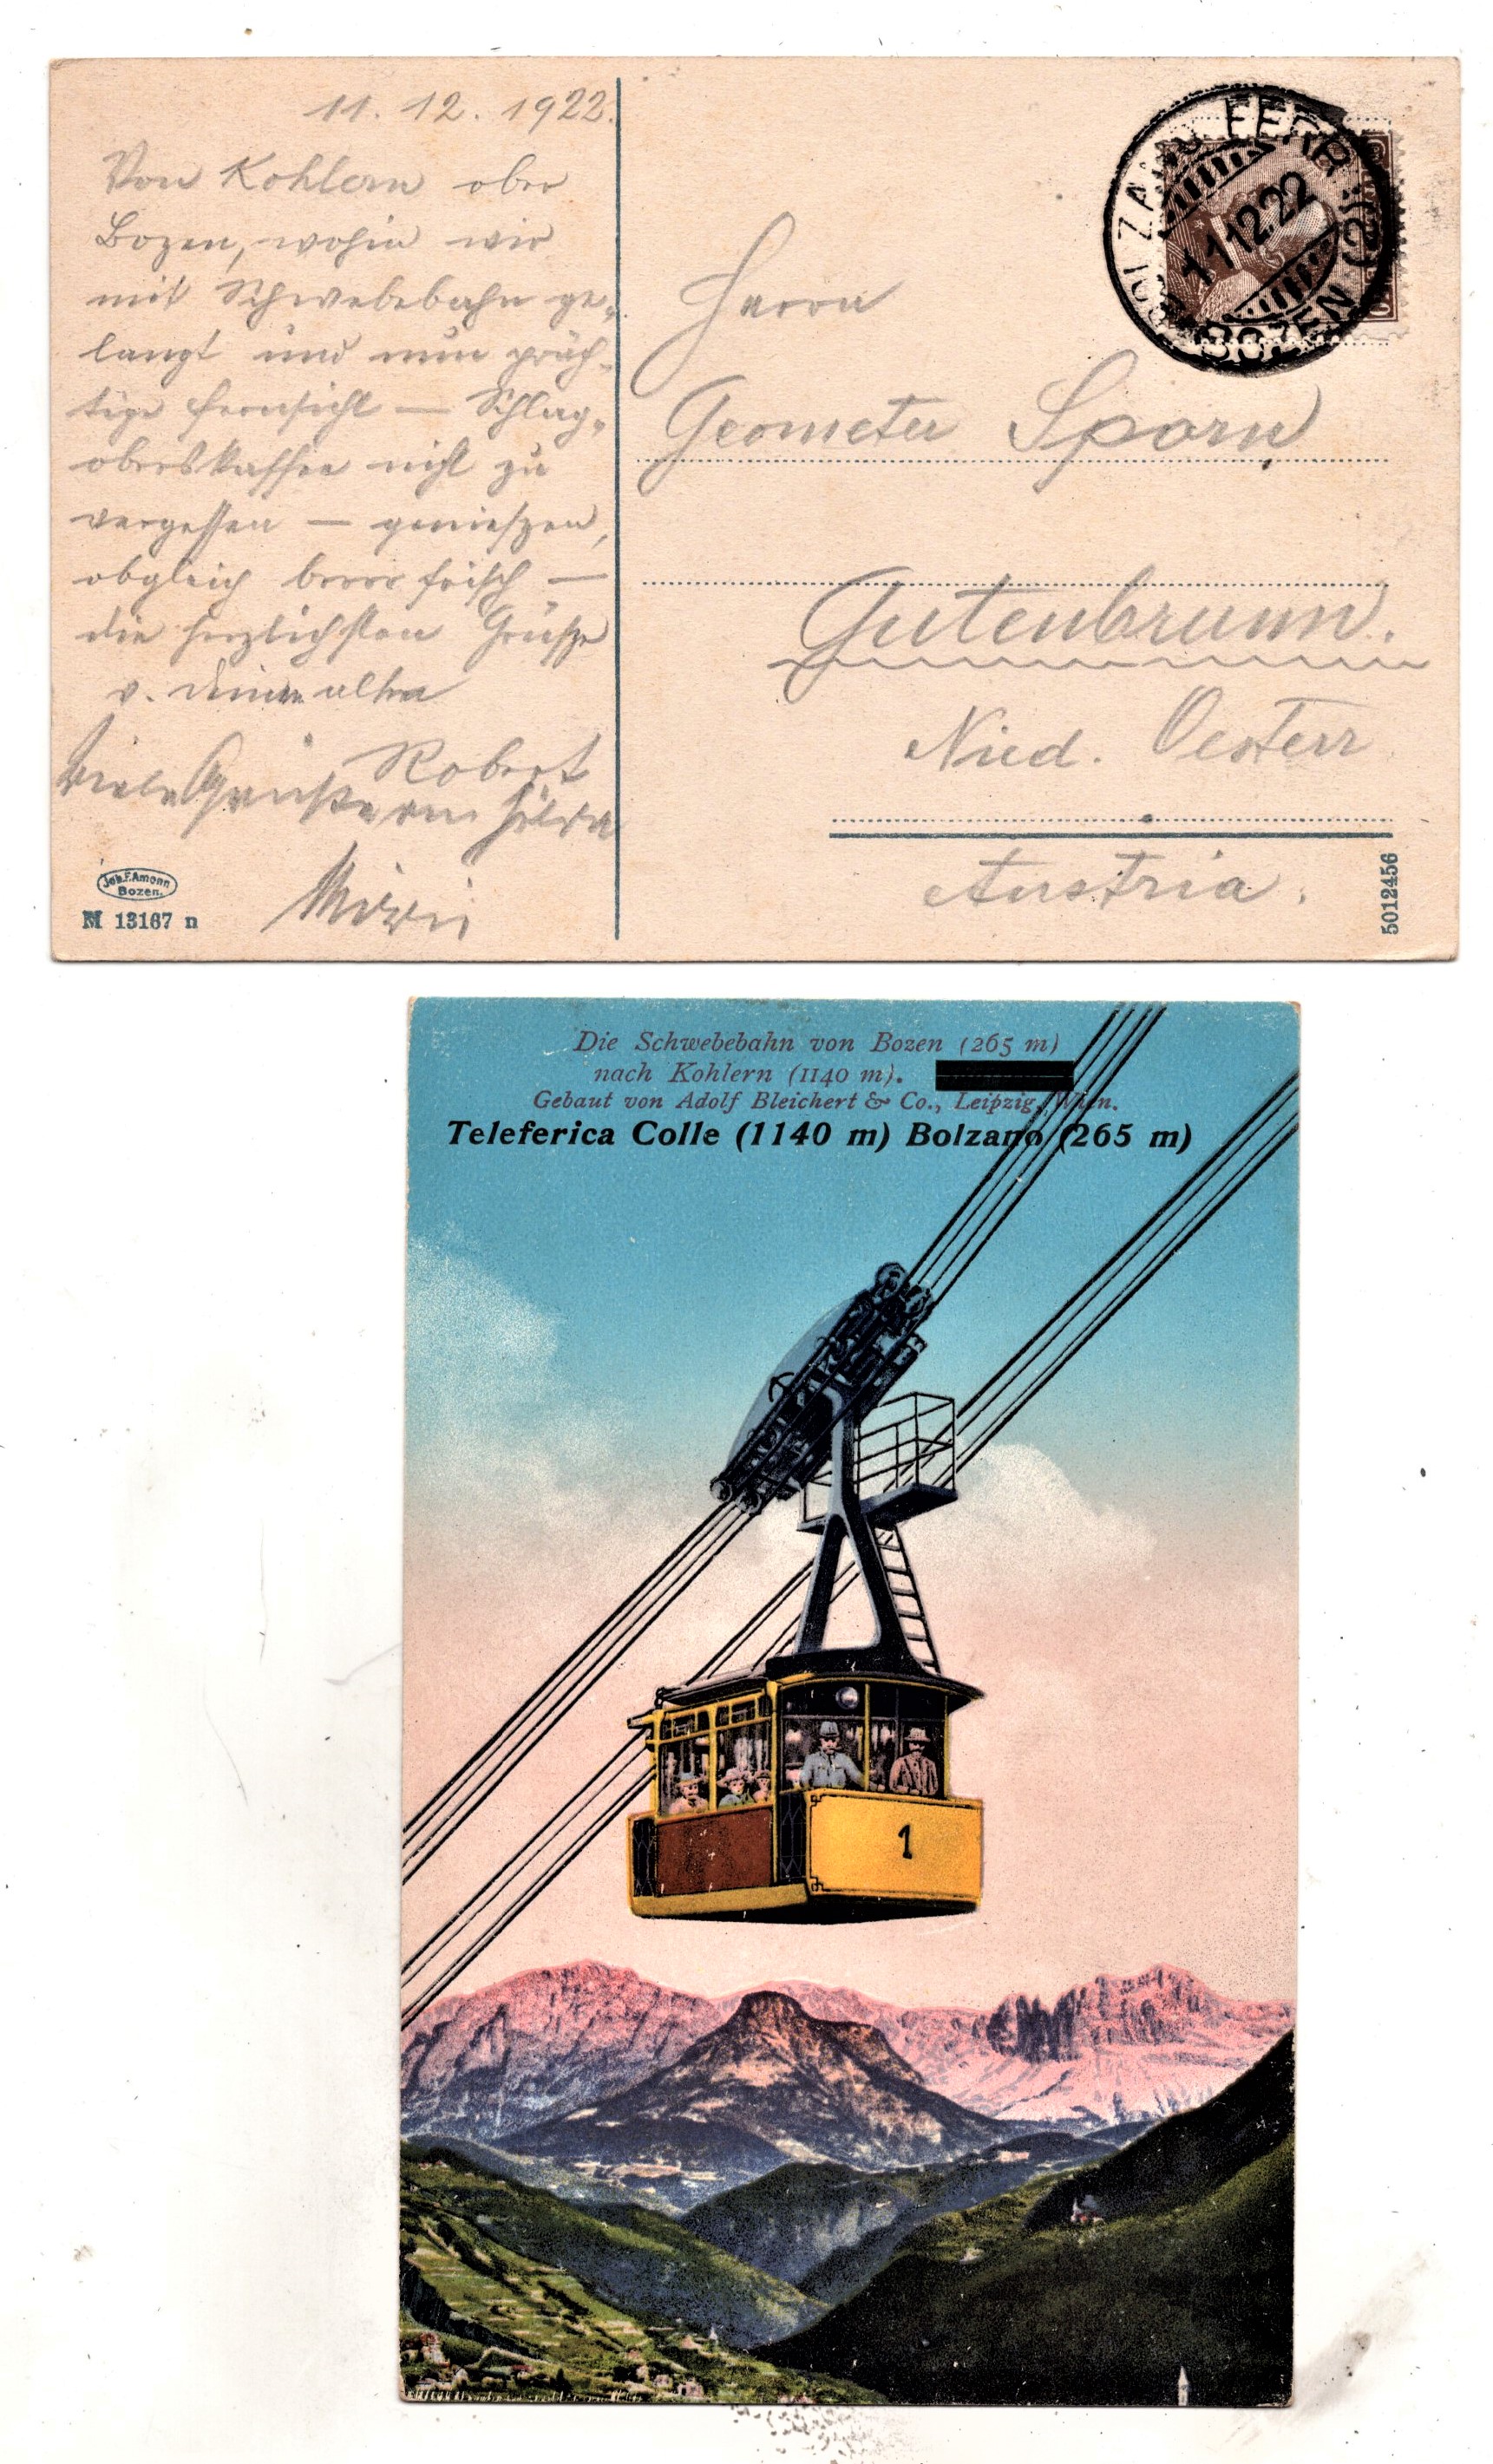 11. 12. 1922.
Von Kohlern ober
Bozen, wohin wir
mit Schwebebahn ge-
langt und nun präch-
tige Fernsicht — Schlag-
oberskaffee nicht zu
vergessen — genieszen,
obgleich brrrr frisch —
die herzlichsten Grüsze
v. Deinem alten
Robert
Viele Grüße von Hilda
Joh. F. Amonn
Bozen.
M 13167 n
BOLZANO FERR.
11 12 22
BOZEN (2)
Herrn
Geometer Sporn
Gutenbrunn.
Nied. Oesterr
Austria.
5012456
Die Schwebebahn von Bozen (265 m)
nach Kohlern (1140 m).
Gebaut von Adolf Bleichert & Co., Leipzig, Wien.
Teleferica Colle (1140 m) Bolzano (265 m)
1